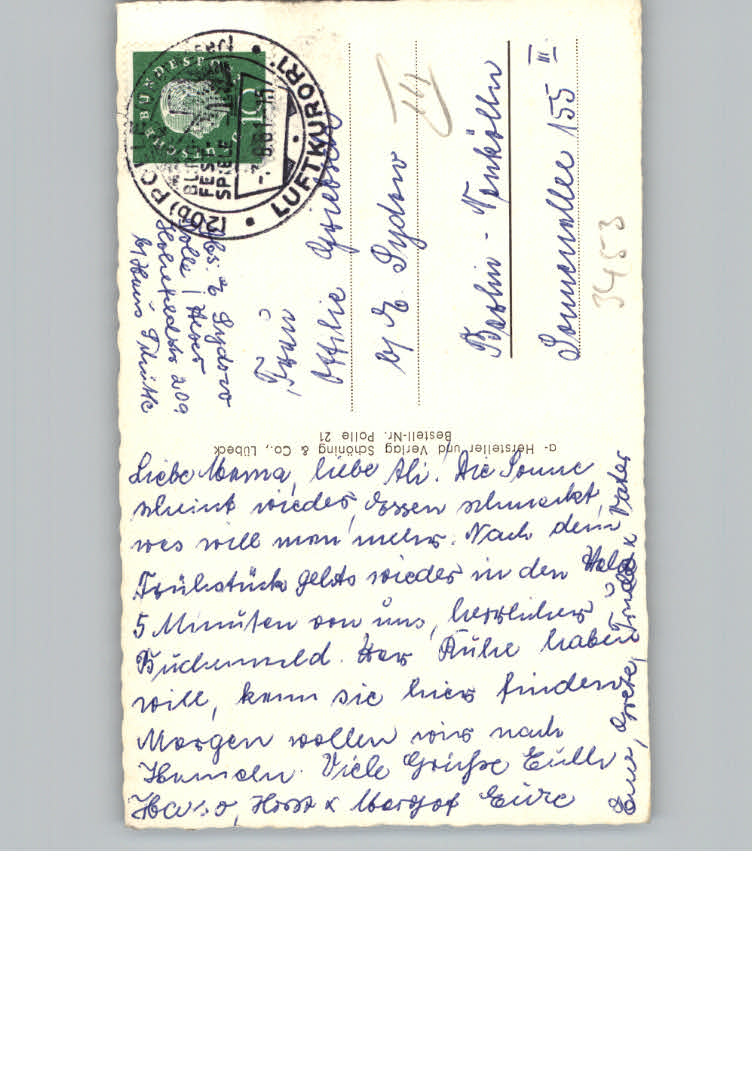 Liebe Mama, liebe Ali! Die Sonne
scheint wieder, Essen schmeckt,
was will man mehr. Nach dem
Frühstück gehts wieder in den Wald
5 Minuten von uns, herrlicher
Buchenwald. Wer Ruhe haben
will, kann sie hier finden.
Morgen wollen wir nach
Hameln. Viele Grüße Eulli
Horst & Margot Eure
Grete, &
Vater
Abs. E. Sydow
Polle / Weser
209
b/ Hans
Frau
Ottilie
b/ E. Sydow
Berlin - Neukölln
Sonnenallee 155 III
14
3453
α- Hersteller und Verlag Schöning & Co., Lübeck
Bestell-Nr. Polle 21
DEUTSCHE BUNDESPOST
10
(20b) POLLE
LUFTKURORT
BURG
FEST
SPIELE